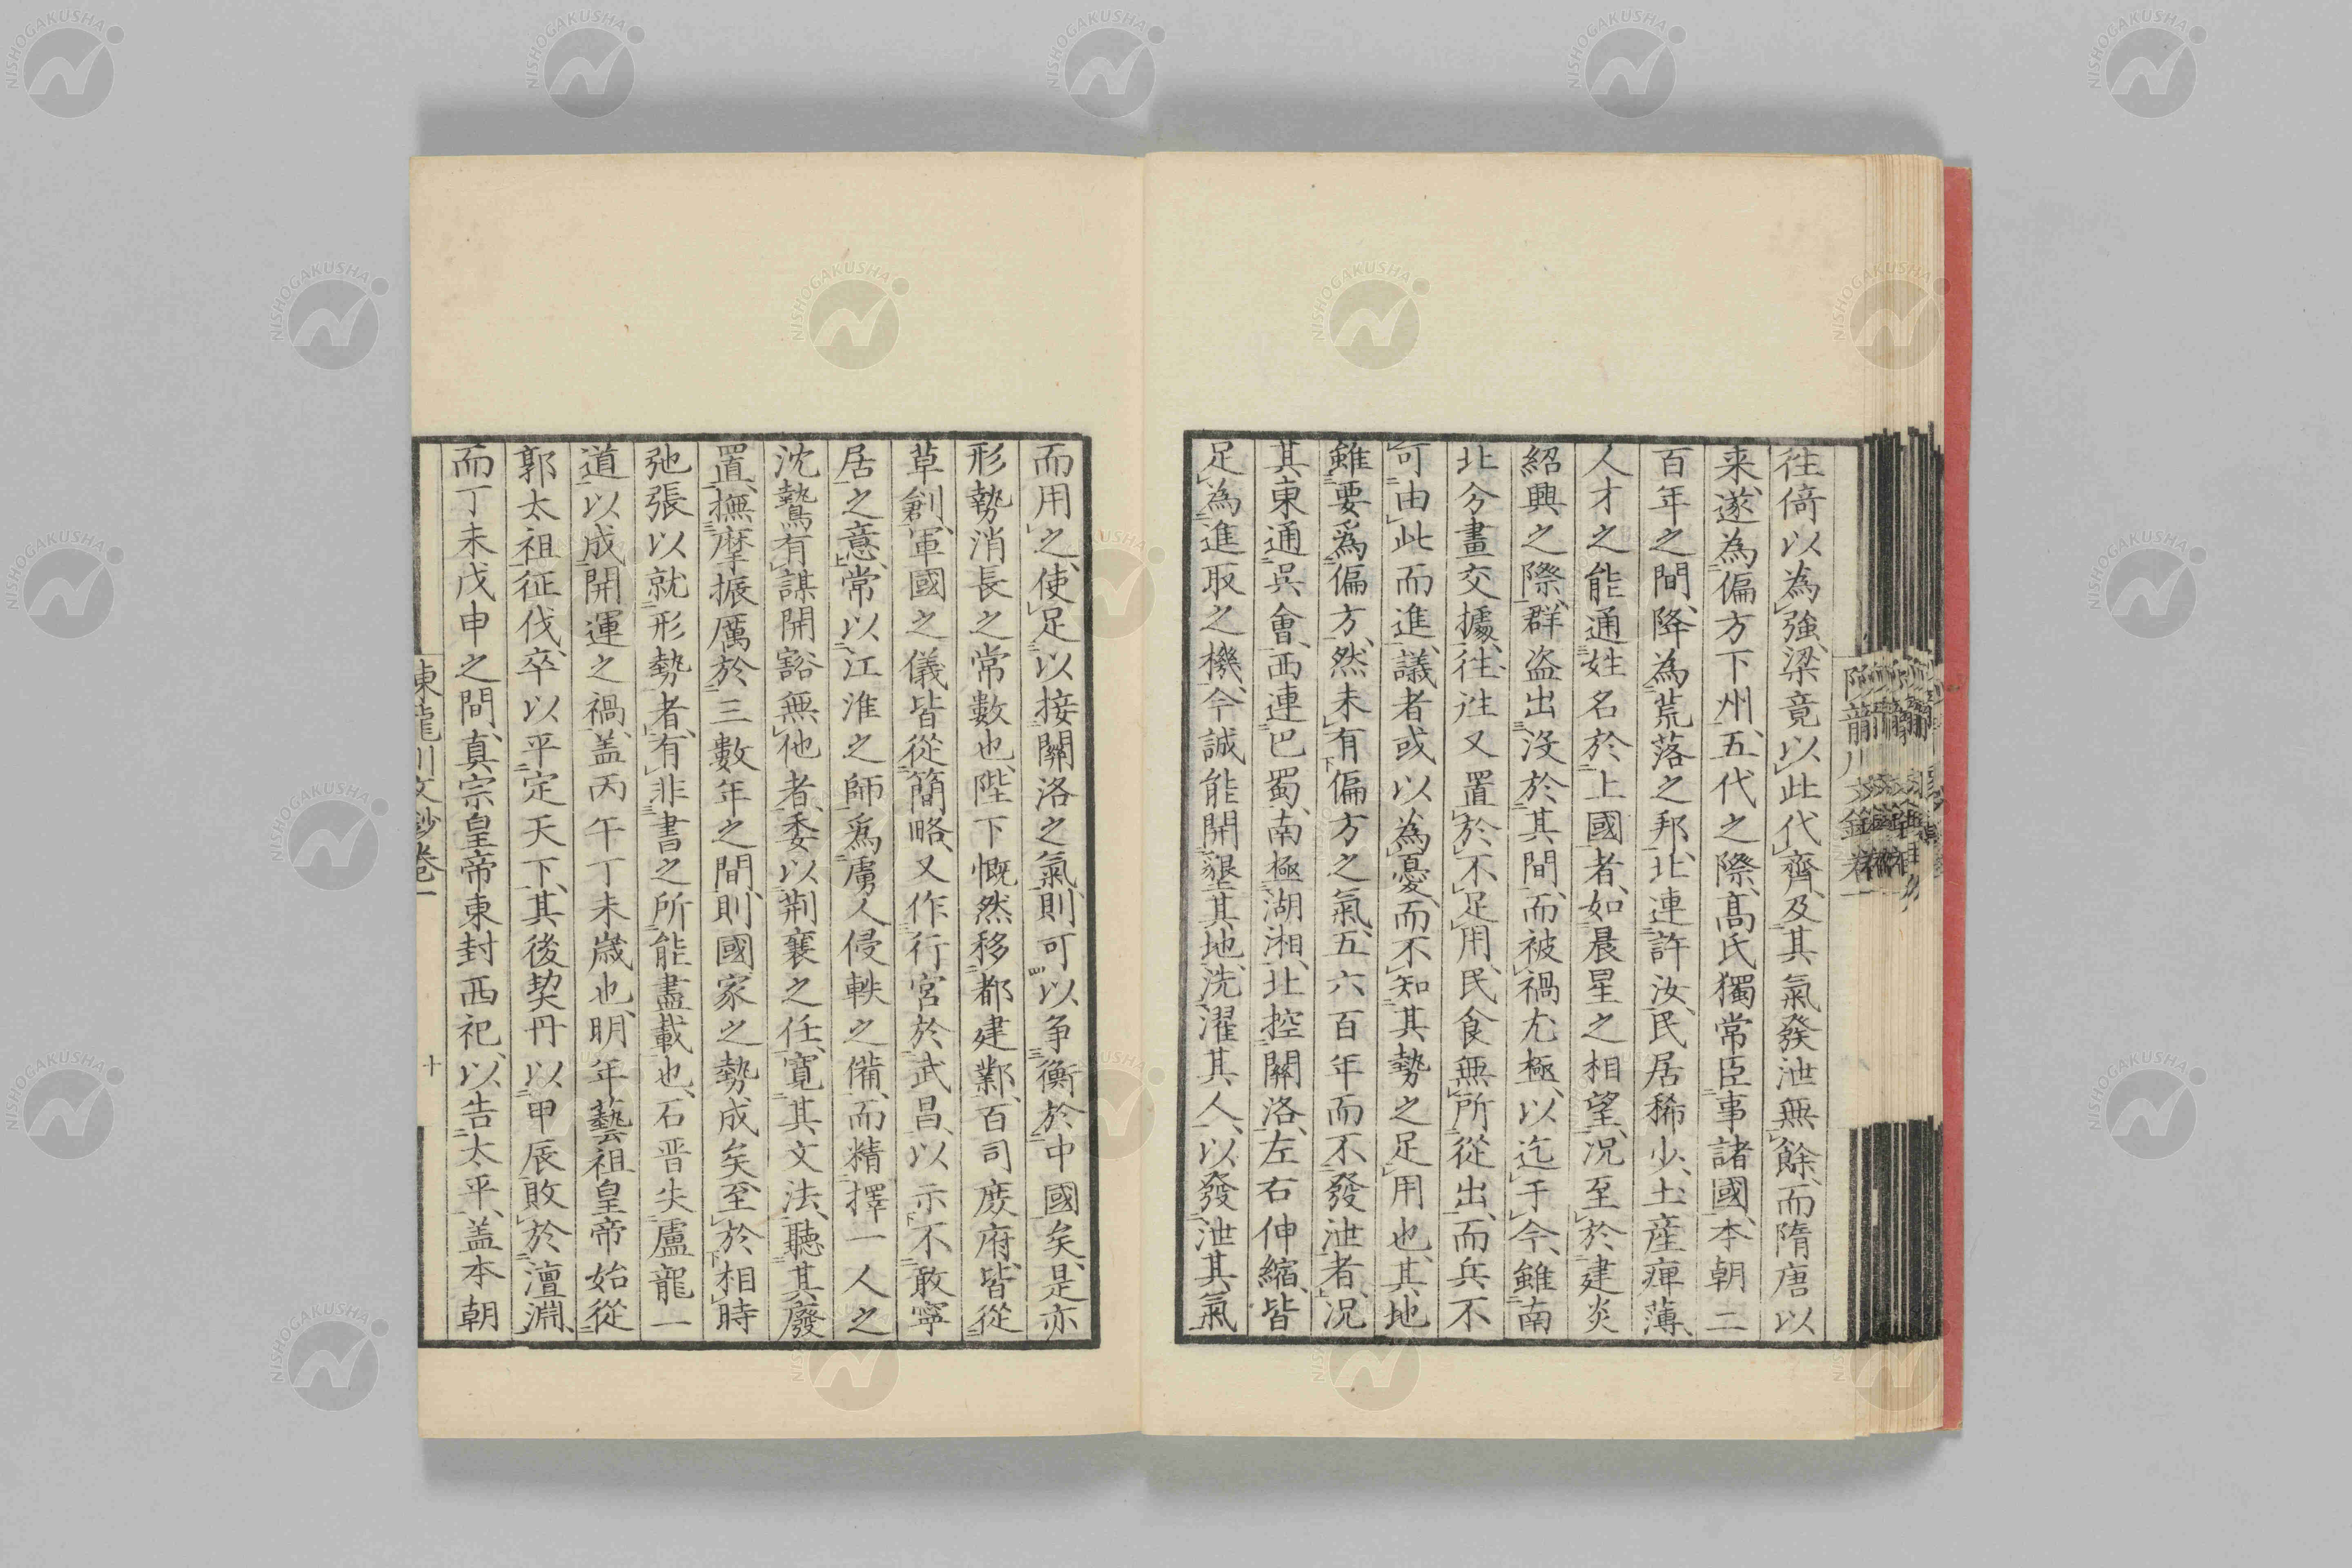 往倚以為強、梁竟以此代齊、及其氣發泄無餘、而隋唐以
来、遂為偏方下州、五代之際、髙氏獨常臣事諸國、本朝二
百年之間、降為荒落之邦、北連許汝、民居稀少、土産痺薄、
人才之能通姓名於上國者、如晨星之相望、况至於建炎
紹興之際、群盗出沒於其間、而被禍尤極、以迄于今、雖南
北分畫交據、往往又置於不足用、民食無所從出、而兵不
可由此而進、議者或以為憂、而不知其勢之足用也、其地
雖要爲偏方、然未有偏方之氣、五六百年而不發泄者、况
其東通呉會、西連巴蜀、南極湖湘、北控關洛、左右伸縮、皆
足為進取之機、今誠能開墾其地、洗濯其人、以發泄其氣
而用之、使足以接關洛之氣、則可以争衡於中國矣、是亦
形勢消長之常數也、陛下慨然移都建鄴、百司庶府、皆從
草創、軍國之儀皆從簡略、又作行宮於武昌、以示不敢寧
居之意、常以江淮之師爲虜人侵軼之備、而精擇一人之
沈鷙有謀開豁無他者、委以荆襄之任、寛其文法、聽其廢
置、撫摩振厲於三數年之間、則國家之勢成矣、至於相時
弛張以就形勢者、有非書之所能盡載也、石晋失盧龍一
道、以成開運之禍、盖丙午丁未歳也、明年藝祖皇帝始從
郭太祖征伐、卒以平定天下、其後契丹以甲辰敗於澶淵、
而丁未戊申之間、真宗皇帝東封西祀、以告太平、盖本朝
陳龍川文鈔卷一
十
NISHOGAKUSHA